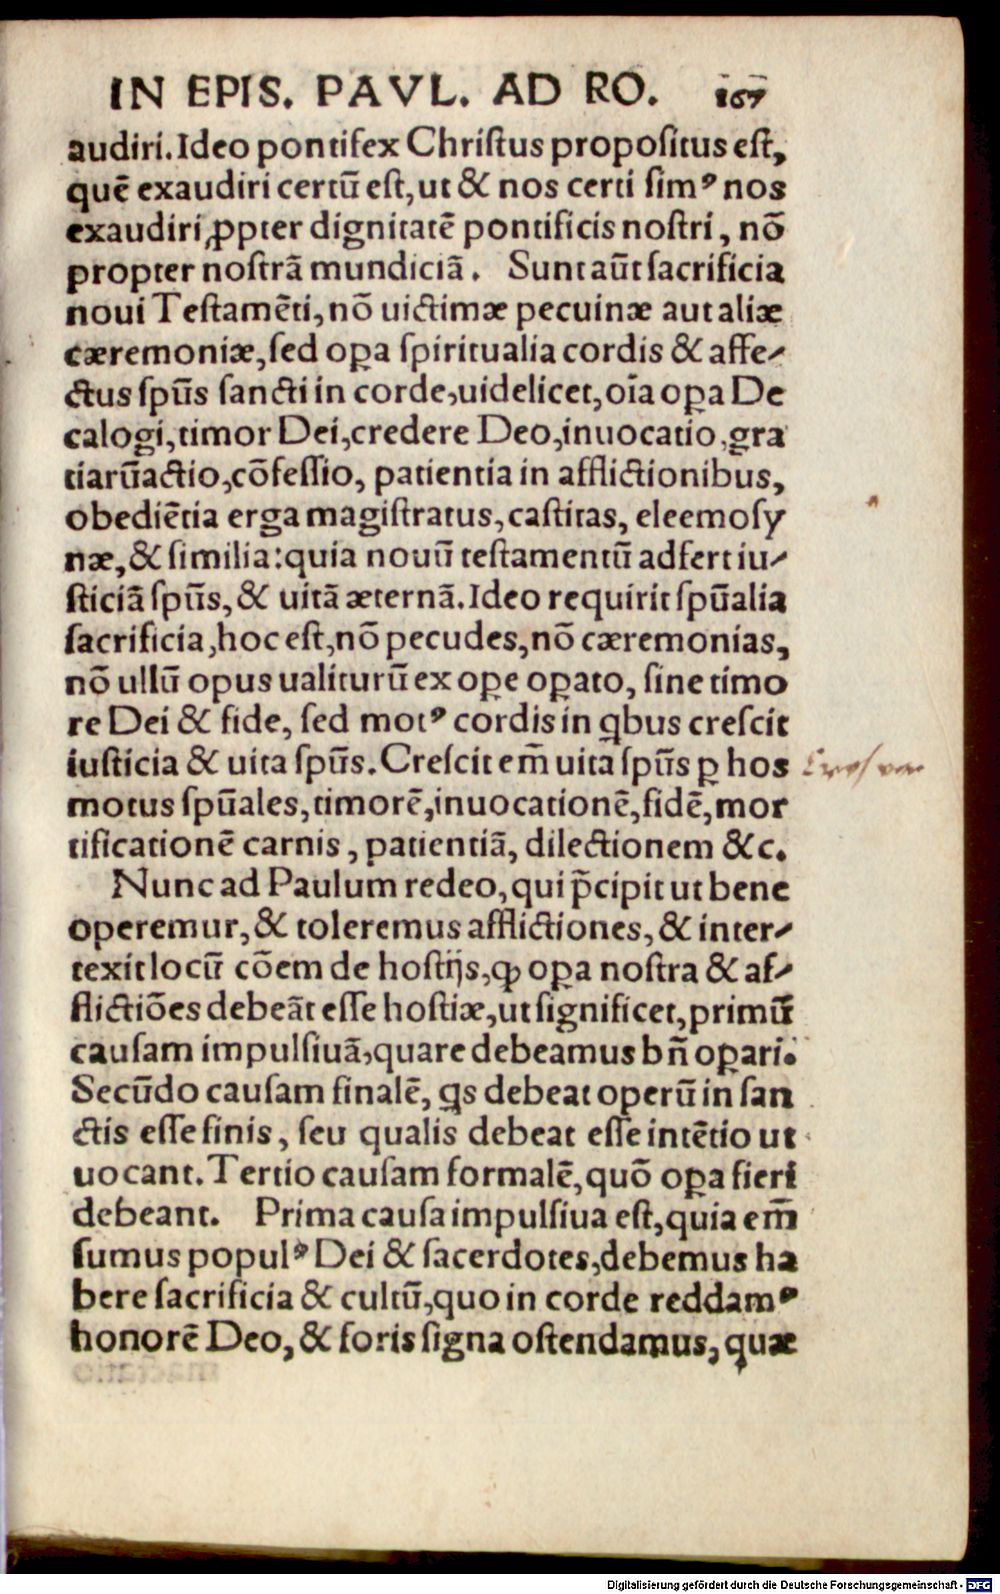 IN EPIS. PAVL. AD RO. 167
audiri. Ideo pontifex Chriſtus propoſitus eſt,
quē exaudiri certū eſt, ut & nos certi ſimꝰ nos
exaudiri ꝓpter dignitatē pontificis noſtri, nō
propter noſtrā mundiciā. Sunt aūt ſacrificia
noui Teſtamēti, nō uictimæ pecuinæ aut aliæ
cæremoniæ, ſed oꝑa ſpiritualia cordis & affe⸗
ctus ſpūs ſancti in corde, uidelicet, oīa oꝑa De
calogi, timor Dei, credere Deo, inuocatio, gra
tiarūactio, cōfeſſio, patientia in afflictionibus,
obediētia erga magiſtratus, caſtitas, eleemoſy
næ, & ſimilia: quia nouū teſtamentū adfert iu⸗
ſticiā ſpūs, & uitā æternā. Ideo requirit ſpūalia
ſacrificia, hoc eſt, nō pecudes, nō cæremonias,
nō ullū opus ualiturū ex oꝑe oꝑato, ſine timo
re Dei & fide, ſed motꝰ cordis in ꝗbus creſcit
iuſticia & uita ſpūs. Creſcit em̄ uita ſpūs ꝑ hos
motus ſpūales, timorē, inuocationē, fidē, mor
tificationē carnis, patientiā, dilectionem &c.
Nunc ad Paulum redeo, qui p̄cipit ut bene
operemur, & toleremus afflictiones, & inter⸗
texit locū cōem de hoſtijs, ꝙ oꝑa noſtra & af⸗
flictiōes debeāt eſſe hoſtiæ, ut ſignificet, primū
cauſam impulſiuā, quare debeamus bn̄ oꝑari.
Secūdo cauſam finalē, ꝗs debeat operū in ſan
ctis eſſe finis, ſeu qualis debeat eſſe intētio ut
uocant. Tertio cauſam formalē, quō oꝑa fieri
debeant. Prima cauſa impulſiua eſt, quia em̄
ſumus populꝰ Dei & ſacerdotes, debemus ha
bere ſacrificia & cultū, quo in corde reddamꝰ
honorē Deo, & foris ſigna oſtendamus, quæ
Digitalisierung gefördert durch die Deutsche Forschungsgemeinschaft - DFG